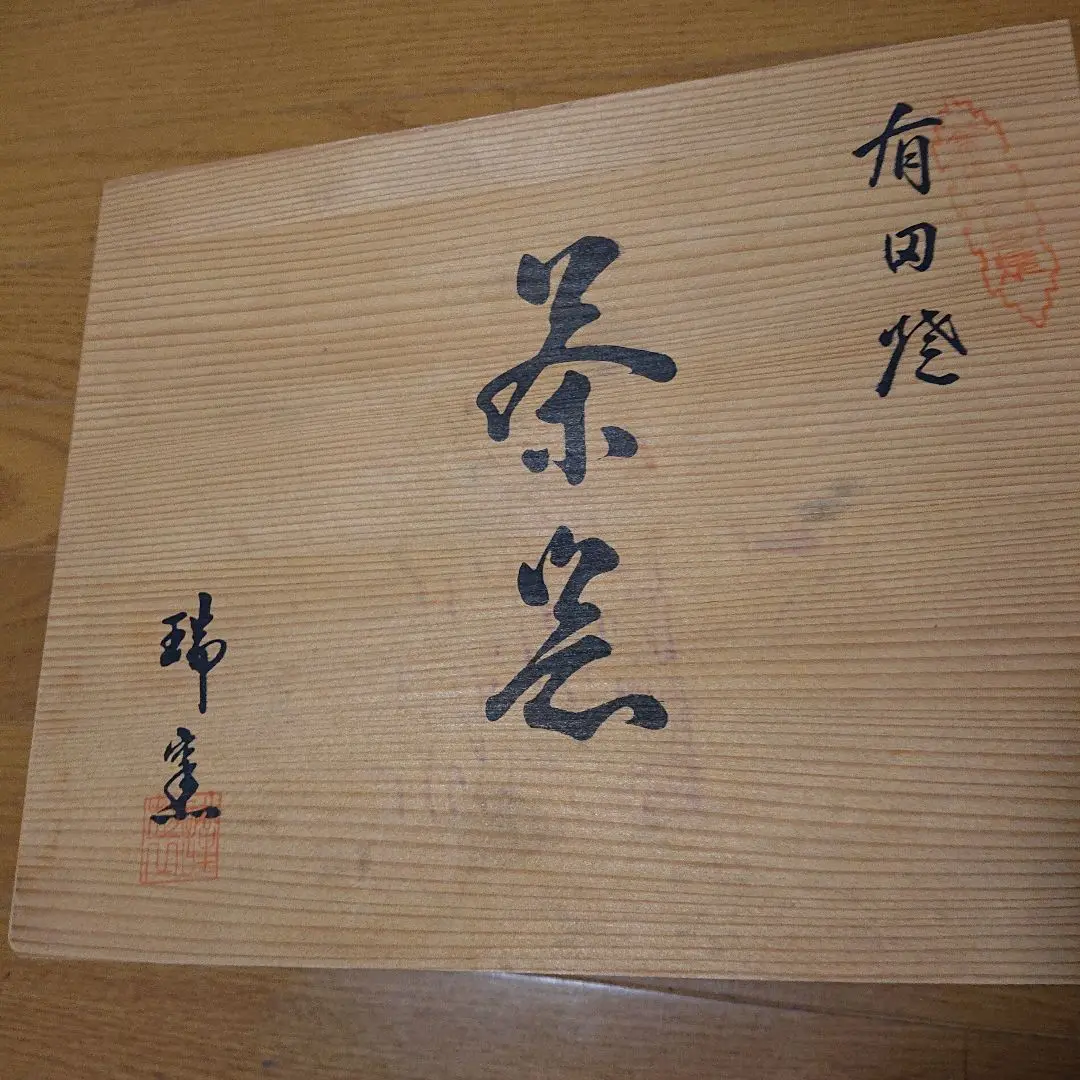 有田焼
茶器
瑞窯